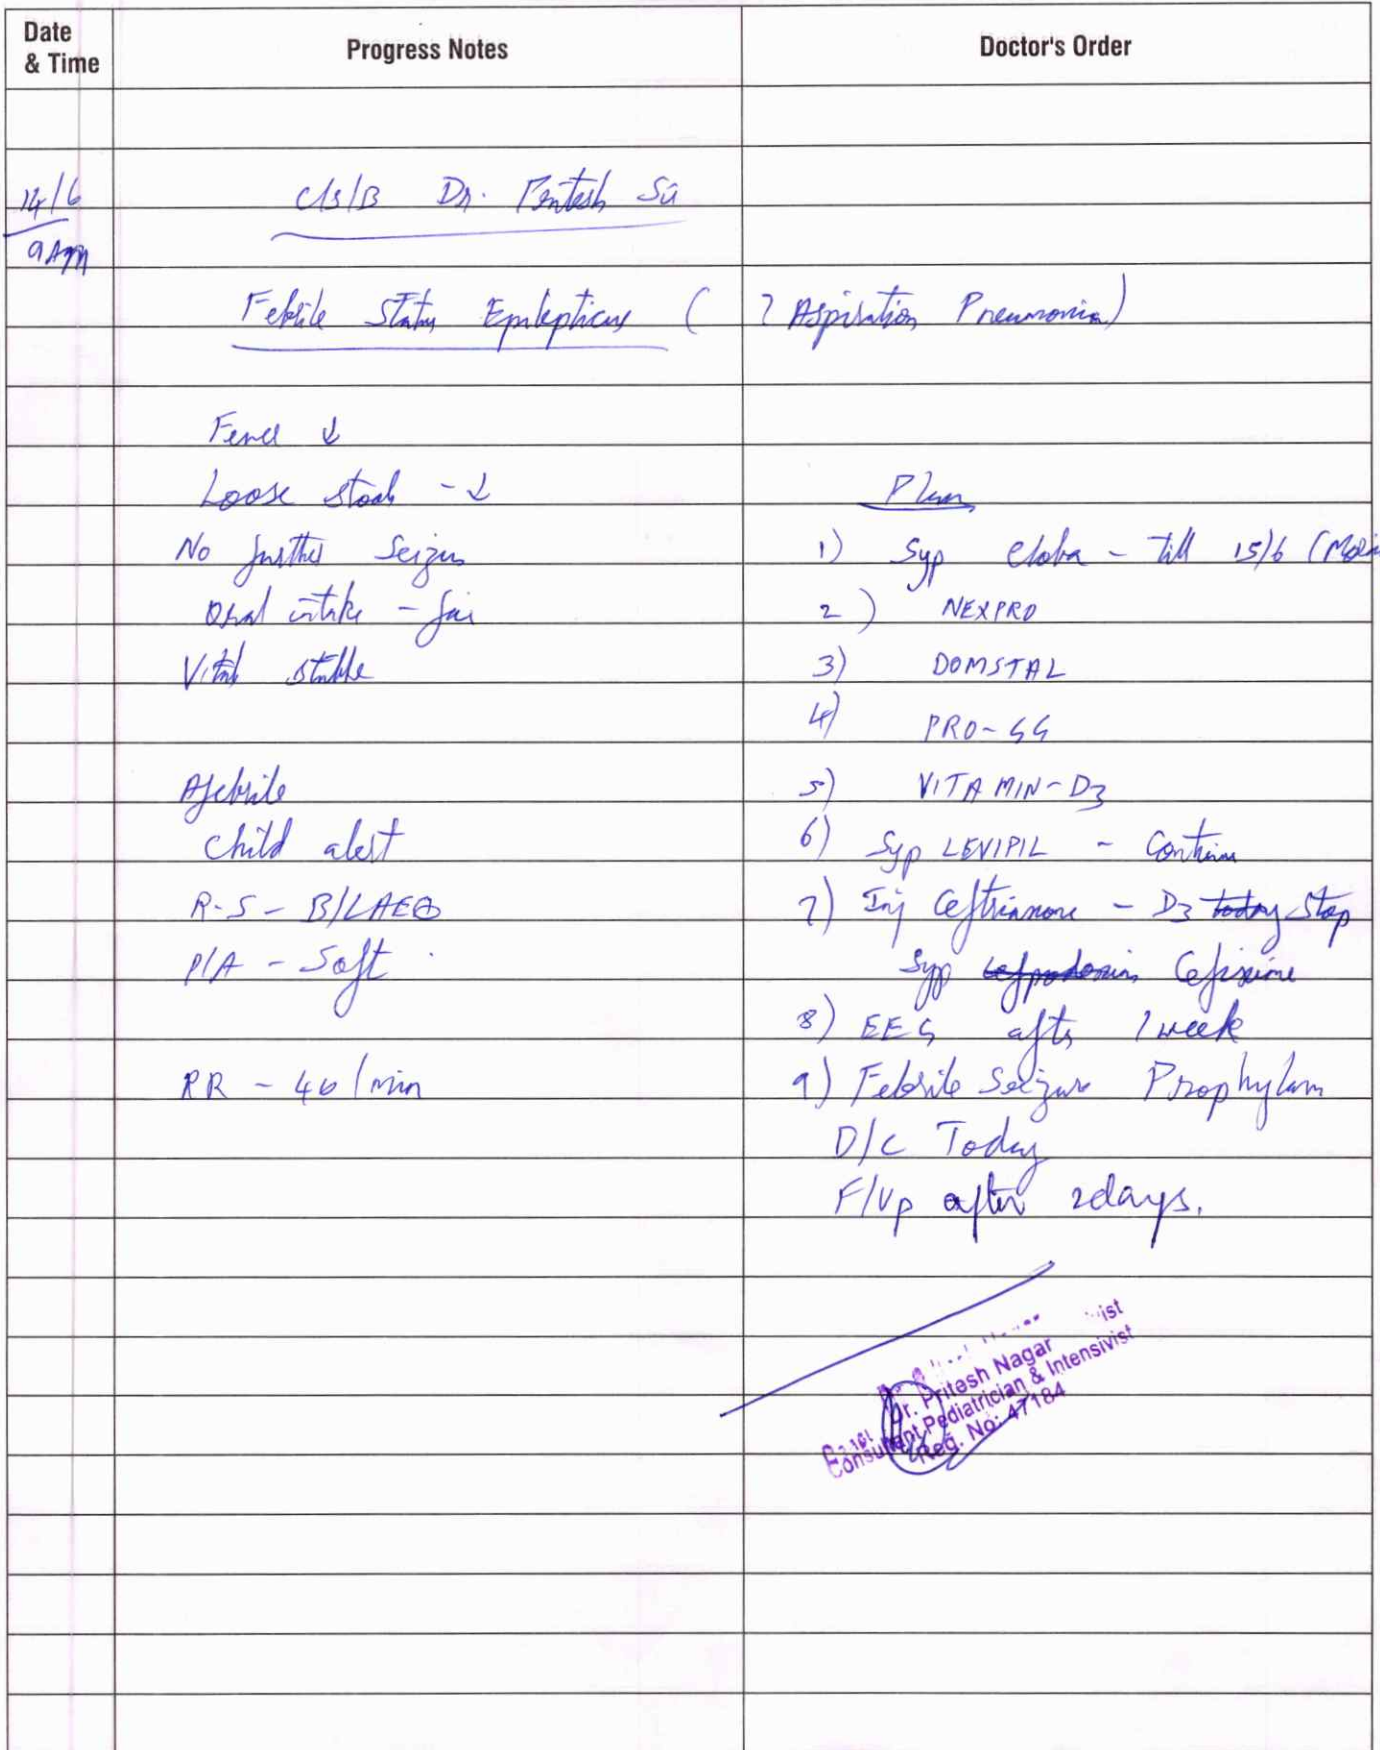 Date
& Time
Progress Notes
Doctor's Order
14/6
9 AM
C/S/B Dr. Pritesh Sir
Febrile Status Epilepticus ( ? Aspiration Pneumonia)
Fever ↓
Loose stools - ↓
No further Seizure
Oral intake - fair
Vitals stable
Afebrile
Child alert
R.S - B/L AE⊕
P/A - Soft
RR - 40/min
Plan
1) Syp Cloba - till 15/6
2) NEXPRO
3) DOMSTAL
4) PRO-GG
5) VITAMIN-D3
6) Syp LEVIPIL - Continue
7) Inj Ceftriaxone - D3 today Stop
Syp Cefpodoxim Cefixime
8) EEG after 1 week
9) Febrile Seizure Prophylaxis
D/C Today
F/Up after 2days.
Dr. Pritesh Nagar
Consultant Pediatrician & Intensivist
Reg. No: 47184